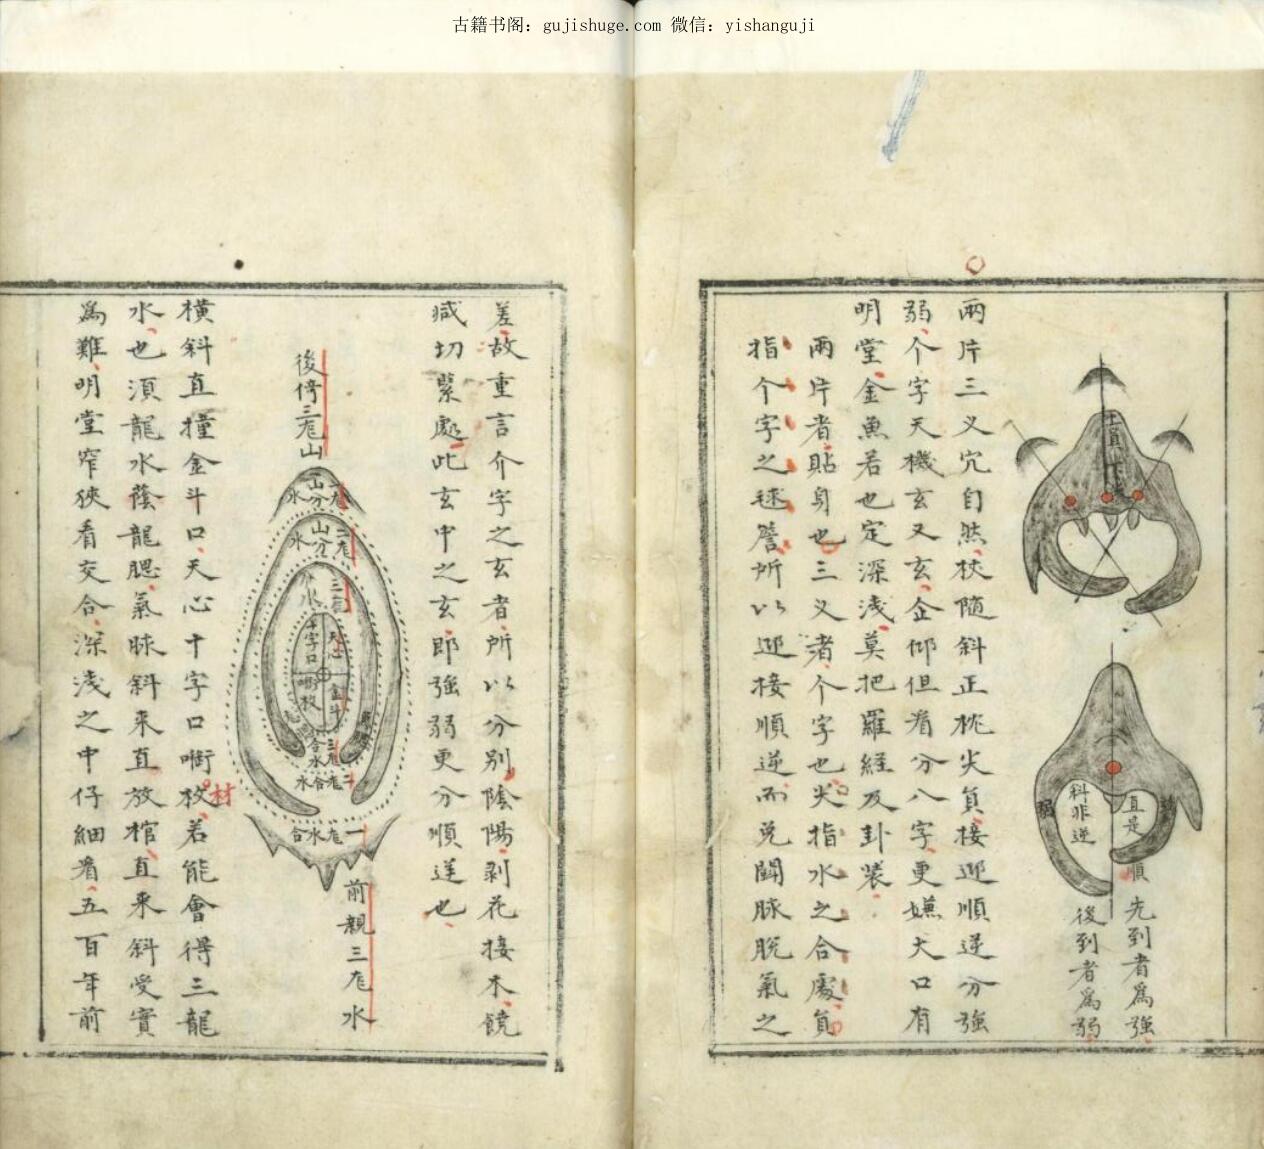 古籍书阁：gujishuge.com 微信：yishanguji
直是順
斜非逆
先到者爲強
後到者爲弱
兩片三义穴自然枝隨斜正枕尖負接迎順逆分強
弱个字天機玄又玄企仰但看分八字更嫌大口有
明堂金魚若也定深浅莫把羅經及卦裝
兩片者貼身也三义者个字也尖指水之合處負
指个字之毬簷所以迎接順逆而兑闘脉脱氣之
差故重言介字之玄者所以分别陰陽剥花接木饒
减切緊處此玄中之玄即強弱更分順逆也
後倚三龙山
山分水
山分水
三龙
天心
十字口
金斗
三龙合水
二龙合水
一龙水合
前親三龙水
橫斜直撞金斗口天心十字口啣枚若能會得三龍
材
水也須龍水蔭龍腮氣脉斜来直放棺直来斜受實
爲難明堂窄狹看交合深浅之中仔細看五百年前